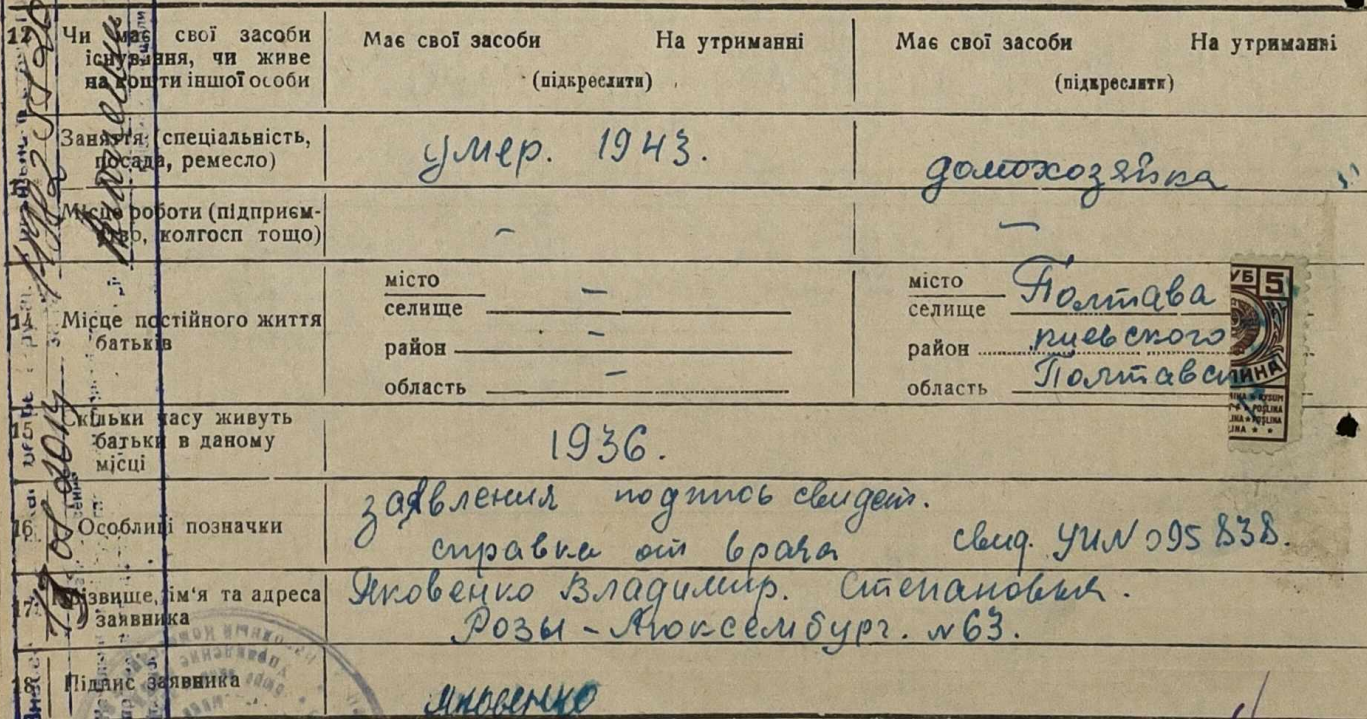 12 Чи має свої засоби існування, чи живе на кошти іншої особи
Має свої засоби На утриманні
(підкреслити)
Має свої засоби На утриманні
(підкреслити)
Заняття (спеціальність, посада, ремесло)
умер. 1943.
домохозяйка
Місце роботи (підприємство, колгосп тощо)
–
–
14 Місце постійного життя батьків
місто
селище –
район –
область –
місто
селище Полтава
район киевского
область Полтавс
УБ 5
15 Скільки часу живуть батьки в даному місці
1936.
16 Особливі позначки
заявления подпись свидет.
справка от врача свид. УИ№095838.
17 Прізвище, ім'я та адреса заявника
Яковенко Владимир. Степановна.
Розы-Люксембург. №63.
18 Підпис заявника
Яковенко